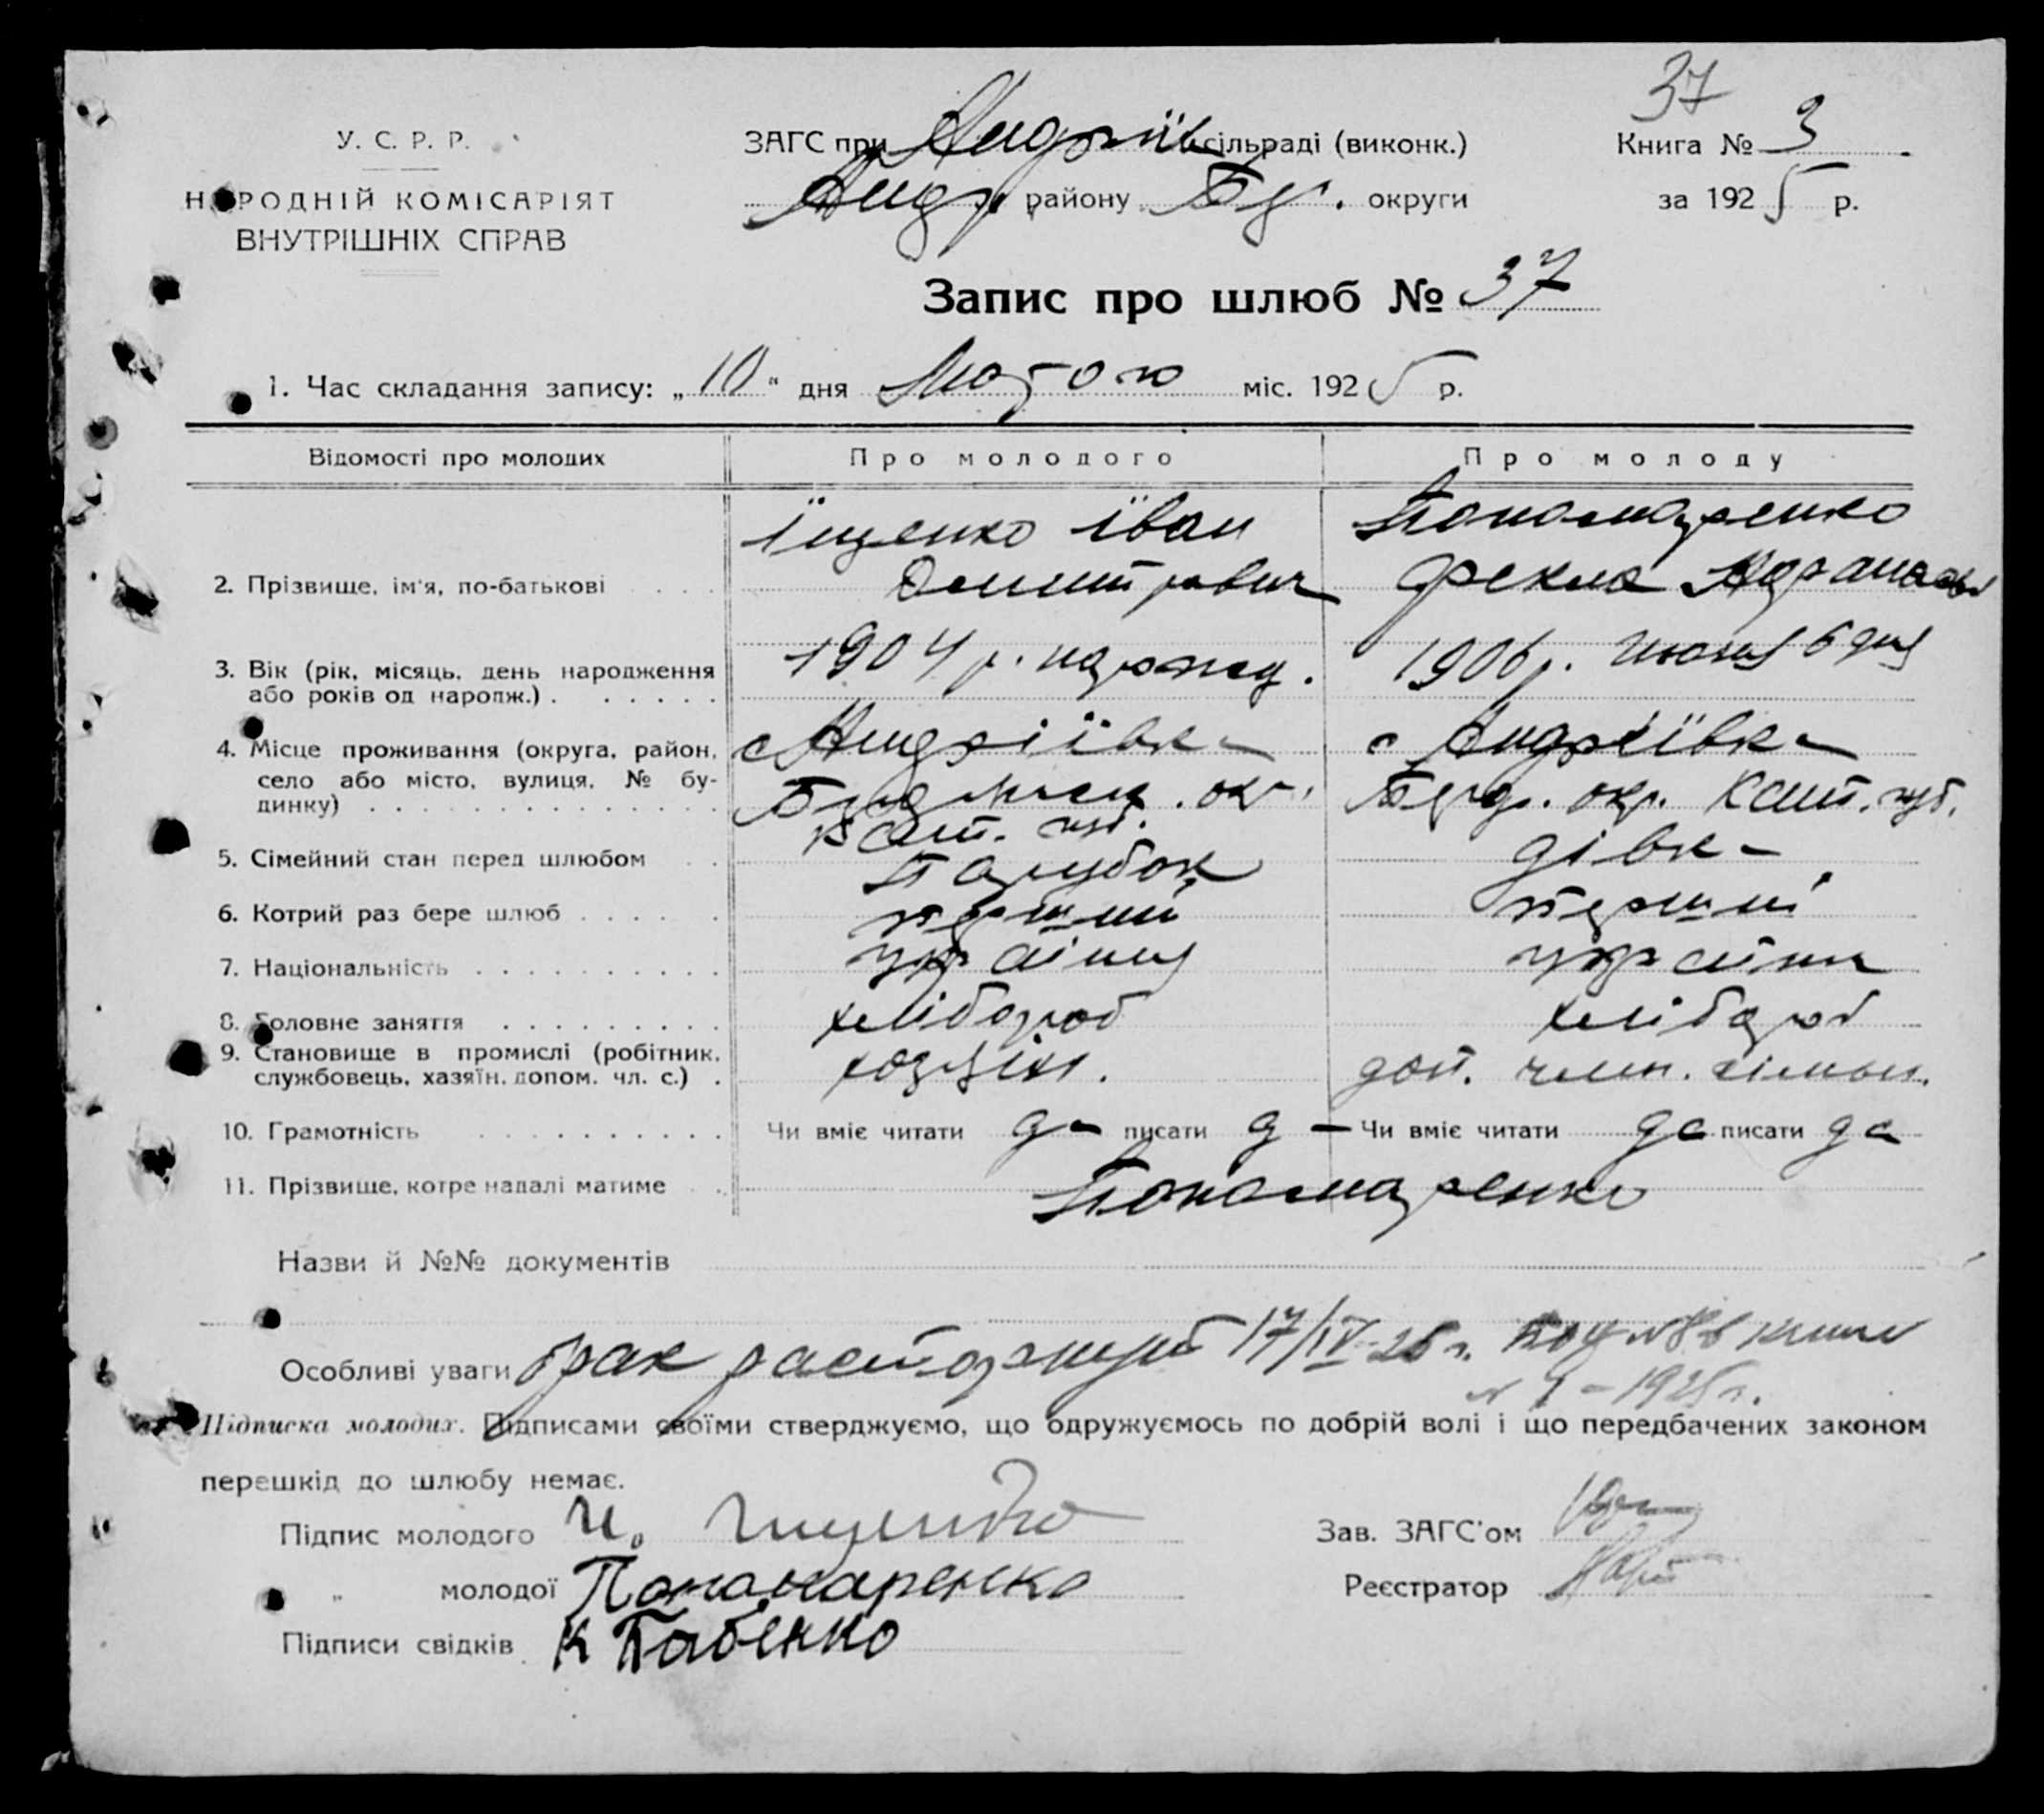 37
У. С. Р. Р.
НАРОДНІЙ КОМІСАРІЯТ
ВНУТРІШНІХ СПРАВ
ЗАГС при Андріїв сільраді (виконк.)
Андр. району Бер. округи
Книга № 3
за 1925 р.
Запис про шлюб № 37
1. Час складання запису: „10" дня Лютого міс. 1925 р.
Відомості про молодих
Про молодого
Про молоду
2. Прізвище, ім'я, по-батькові
Іщенко Іван
Дмитрович
Пономаренко
Фекла
3. Вік (рік, місяць, день народження
або років од народж.)
1904 р. нарожд.
1906 р. Июня 6 дня
4. Місце проживання (округа, район,
село або місто, вулиця, № бу-
динку)
с Андріївка
Бердянськ. окр.
Кат. губ.
с Андріївка
Берд. окр. Кат. губ.
5. Сімейний стан перед шлюбом
Парубок
дівка
6. Котрий раз бере шлюб
перший
перший
7. Національність
україн
україн
8. Головне заняття
хлібороб
хлібороб
9. Становище в промислі (робітник,
службовець, хазяїн, допом. чл. с.)
хозяїн.
доп. член.
10. Грамотність
Чи вміє читати да писати да
Чи вміє читати да писати да
11. Прізвище, котре надалі матиме
Пономаренко
Назви й №№ документів
Особливі уваги брак расторгнут 17/IV-25 г. под №8 в книге
№ 4 – 1925 г.
Підписка молодих. Підписами своїми стверджуємо, що одружуємось по добрій волі і що передбачених законом
перешкід до шлюбу немає.
Підпис молодого И. Ищенко
„ молодої Пономаренко
Підписи свідків К Бабенко
Зав. ЗАГС'ом
Реєстратор